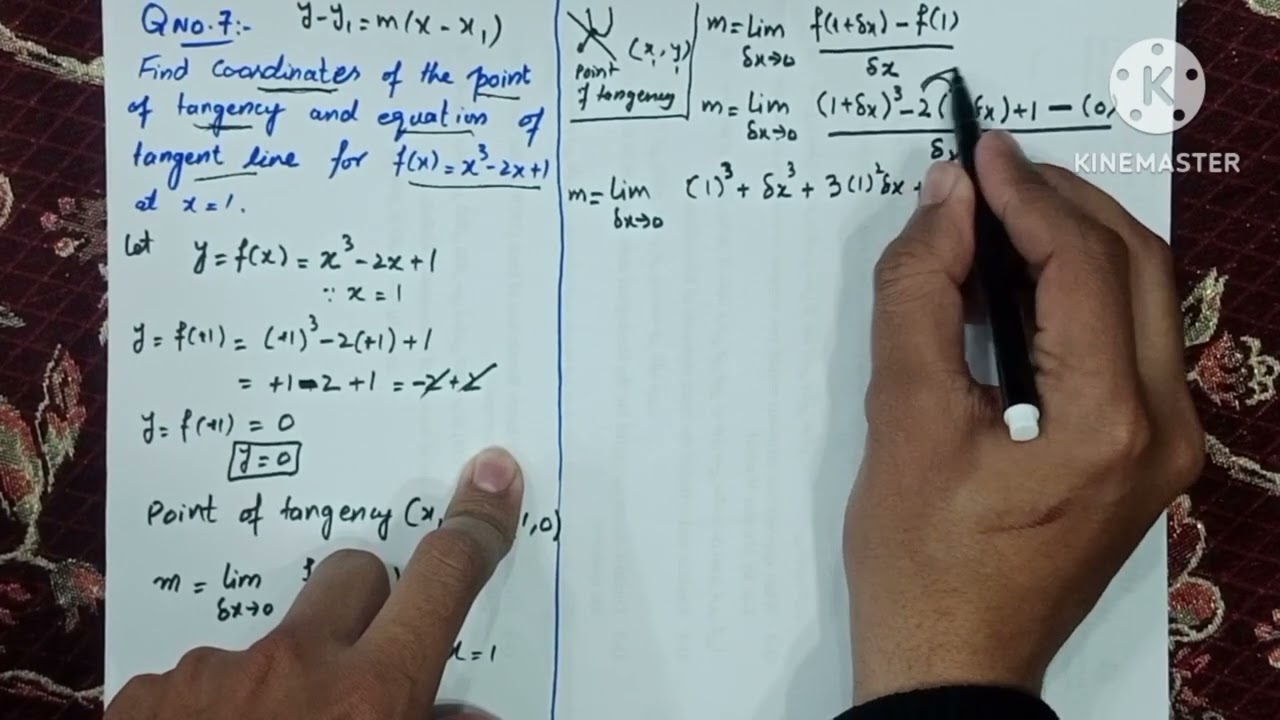 Q NO. 7:- y-y₁ = m(x - x₁)
Find coordinates of the point
of tangency and equation of
tangent line for f(x) = x³-2x+1
at x = 1.
Let y = f(x) = x³ - 2x + 1
∵ x = 1
y = f(+1) = (+1)³ - 2(+1) + 1
= +1 - 2 + 1 = -2 + 2
y = f(+1) = 0
y = 0
Point of tangency (x, 1,0)
m = lim
δx→0
x = 1
(x, y)
Point
of tangency
m = lim f(1+δx) - f(1)
δx→0 δx
m = lim (1+δx)³ - 2( δx) + 1 - (0)
δx→0
m = lim (1)³ + δx³ + 3(1)²δx +
δx→0
K
KINEMASTER